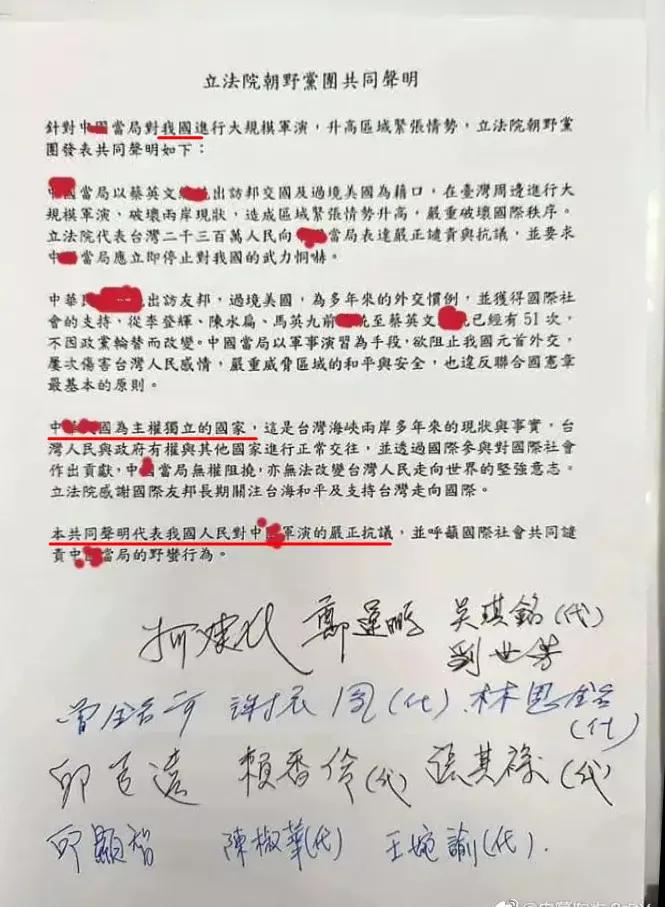 立法院朝野黨團共同聲明
針對中 當局對我國進行大規模軍演，升高區域緊張情勢，立法院朝野黨
團發表共同聲明如下：
當局以蔡英文 出訪邦交國及過境美國為藉口，在臺灣周邊進行大
規模軍演、破壞兩岸現狀，造成區域緊張情勢升高，嚴重破壞國際秩序。
立法院代表台灣二千三百萬人民向 當局表達嚴正譴責與抗議，並要求
中 當局應立即停止對我國的武力恫嚇。
中華 出訪友邦，過境美國，為多年來的外交慣例，並獲得國際社
會的支持，從李登輝、陳水扁、馬英九前 統至蔡英文 已經有51次，
不因政黨輪替而改變。中國當局以軍事演習為手段，欲阻止我國元首外交，
屢次傷害台灣人民感情，嚴重威脅區域的和平與安全，也違反聯合國憲章
最基本的原則。
中 國為主權獨立的國家，這是台灣海峽兩岸多年來的現狀與事實，台
灣人民與政府有權與其他國家進行正常交往，並透過國際參與對國際社會
作出貢獻，中 當局無權阻撓，亦無法改變台灣人民走向世界的堅強意志。
立法院感謝國際友邦長期關注台海和平及支持台灣走向國際。
本共同聲明代表我國人民對中 軍演的嚴正抗議，並呼籲國際社會共同譴
責中 當局的野蠻行為。
柯建
鄭運鵬
吳琪銘(代)
劉世芳
曾銘宗 謝衣鳯(代) 林思銘
(代)
邱臣遠 賴香伶(代) 張其祿(代)
邱顯智 陳椒華(代) 王婉諭(代)